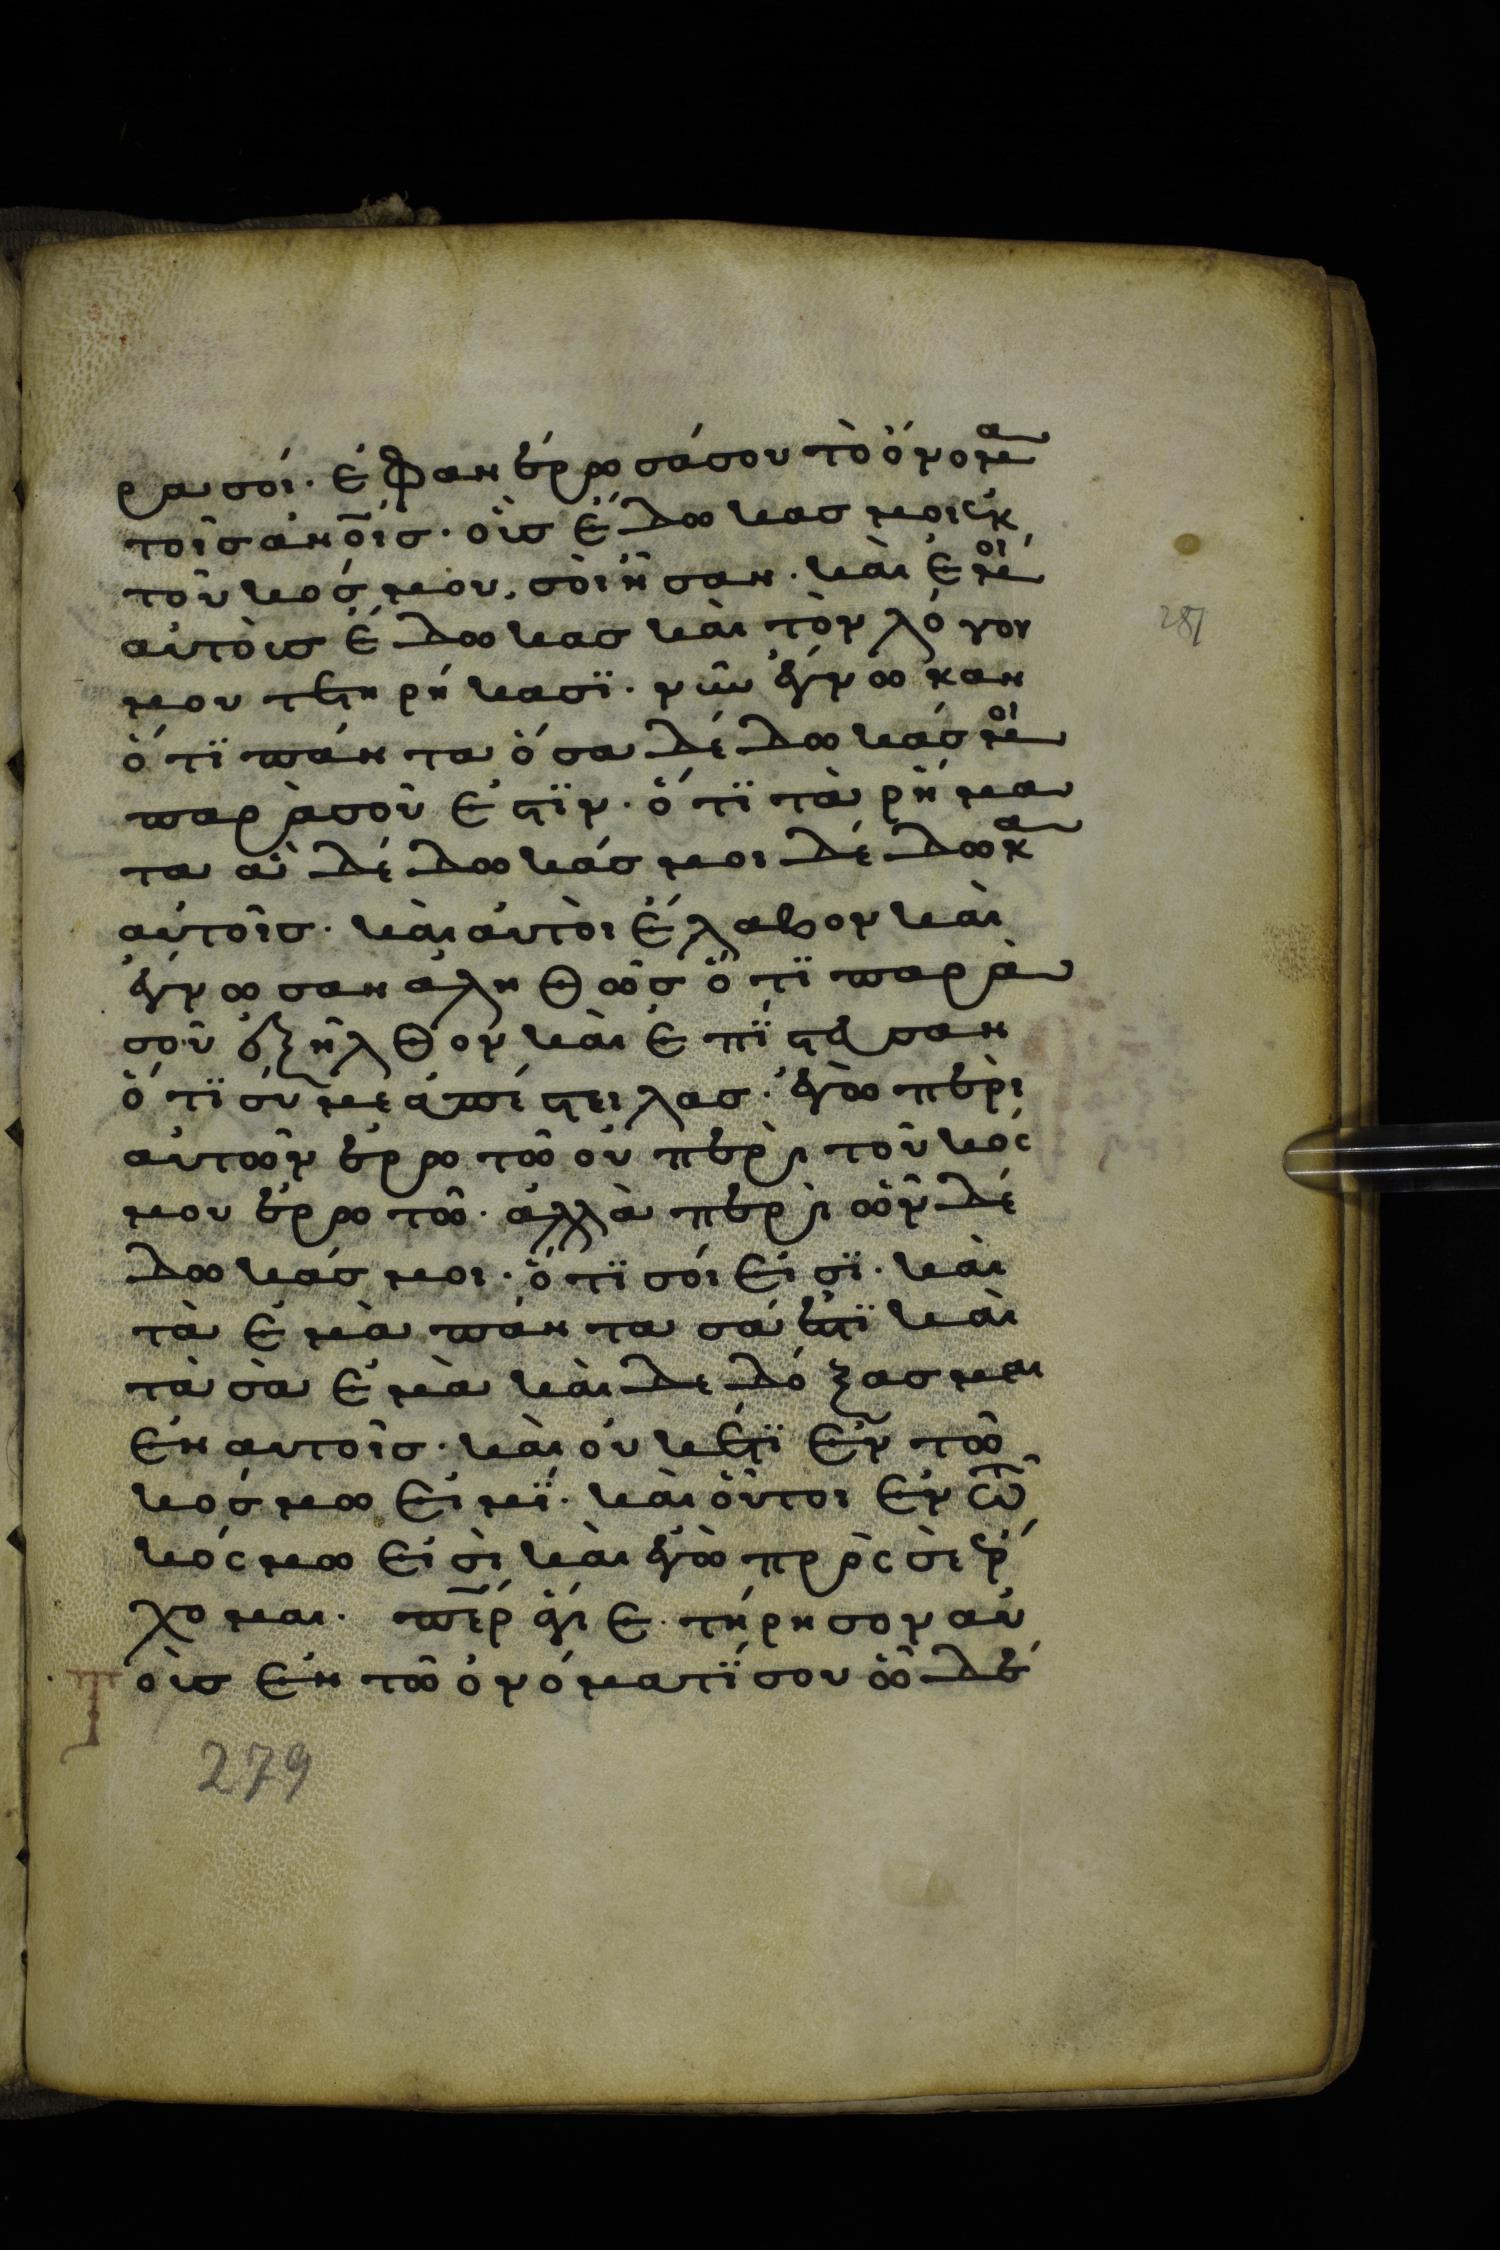 ρα σοί· ἐφανέρωσά σου τὸ ὄνομα
τοῖς ἀνο̅ις· οὓς ἔδωκας μοι ἐκ
τοῦ κόσμου, σοὶ ἦσαν· καὶ ἐμοὶ
αὐτοὺς ἔδωκας καὶ τὸν λόγον
μου τετηρήκασϊ· νῦν ἔγνωκαν
ὅτϊ πάντα ὅσα δέδωκάς μοι
παρὰ σοῦ ἐστϊν· ὅτϊ τὰ ρήμα
τα ἃ δέδωκάς μοι δέδωκα
αὐτοῖς· καὶ αὐτοὶ ἔλαβον καὶ
ἔγνωσαν ἀληθῶς ὅτϊ παρὰ
σοῦ ἐξῆλθον καὶ ἐπΐστευσαν
ὅτϊ σύ με ἀπέστειλας· ἐγὼ περὶ
αὐτῶν ἐρωτῶ οὐ περὶ τοῦ κόσ
μου ἐρωτῶ· ἀλλὰ περὶ ὧν δέ
δωκάς μοι· ὅτϊ σοί εἰσϊ· καὶ
τὰ ἐμὰ πάντα σά ἐστϊ καὶ
τὰ σὰ ἐμὰ καὶ δεδόξασμαι
ἐν αὐτοῖς· καὶ οὐκέτϊ ἐν τῶ
κόσμω εἰμϊ· καὶ οὗτοι ἐν τῶ
κόσμω εἰσὶ καὶ ἐγὼ πρὸς σὲ ἔρ
χομαι· πε̅ρ ἅγιε· τήρησον αὐ
τοὺς ἐν τῶ ὀνόματΐ σου ὧ δέ
279
281